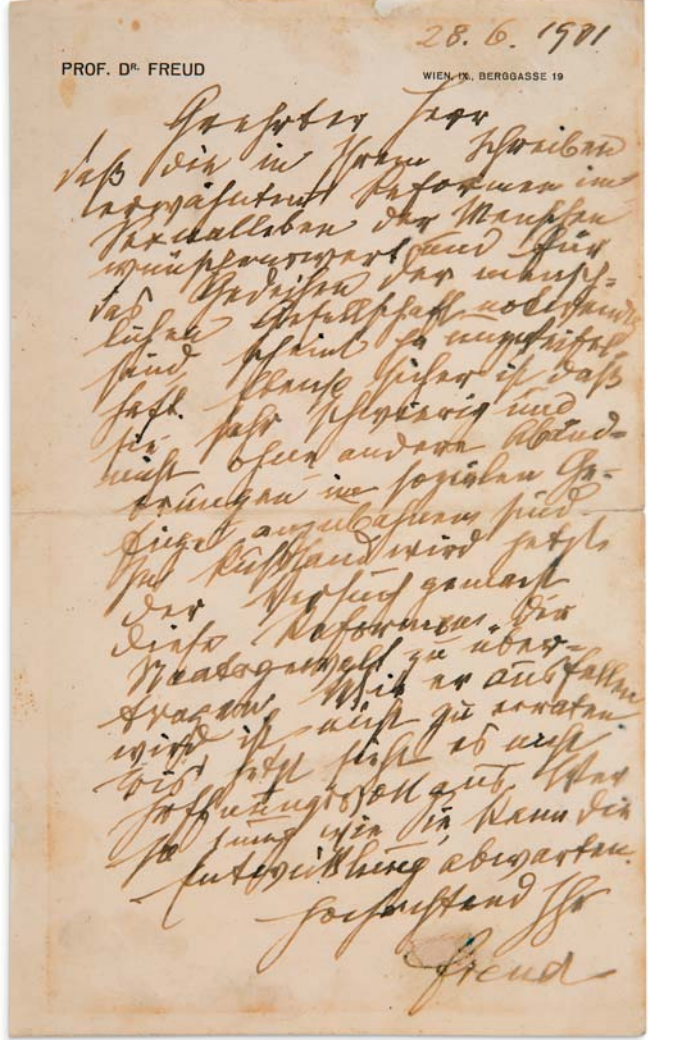 28. 6. 1931
PROF. DR. FREUD
WIEN, IX., BERGGASSE 19
Geehrter Herr
Daß die in Ihrem Schreiben
erwähnten Reformen im
Sexualleben der Menschen
wünschenswert und für
das Gedeihen der mensch-
lichen Gesellschaft notwendig
sind, scheint ja unzweifel-
haft. Ebenso sicher ist daß
sie sehr schwierig und
nicht ohne andere Abänd-
erungen im sozialen Ge-
füge anzubahnen sind.
In Rußland wird jetzt
der Versuch gemacht
diese Reformen der
Staatsgewalt zu über-
tragen. Wie er ausfallen
wird ist nicht zu erraten
bis jetzt sieht es nicht
hoffnungsvoll aus. Wer
so jung wie Sie, kann die
Entwicklung abwarten.
Hochachtend Ihr
Freud